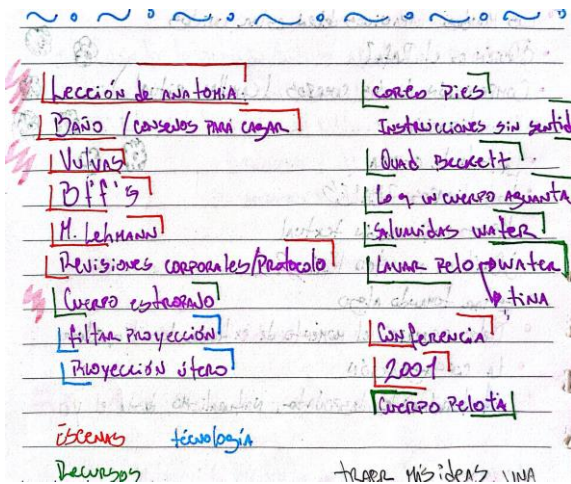 Lección de anatomía
Baño / consejos para cagar
Vulvas
Bff's
M. Lehmann
Revisiones corporales/Protocolo
Cuerpo estropajo
filtrar proyección
Proyección útero
escenas tecnología
Recursos
coreo pies
Instrucciones sin sentid
Quad Beckett
Lo q un cuerpo aguanta
Salvavidas water
Lavar pelo → water
tina
Conferencia
2001
Cuerpo Pelota
traer mis ideas una